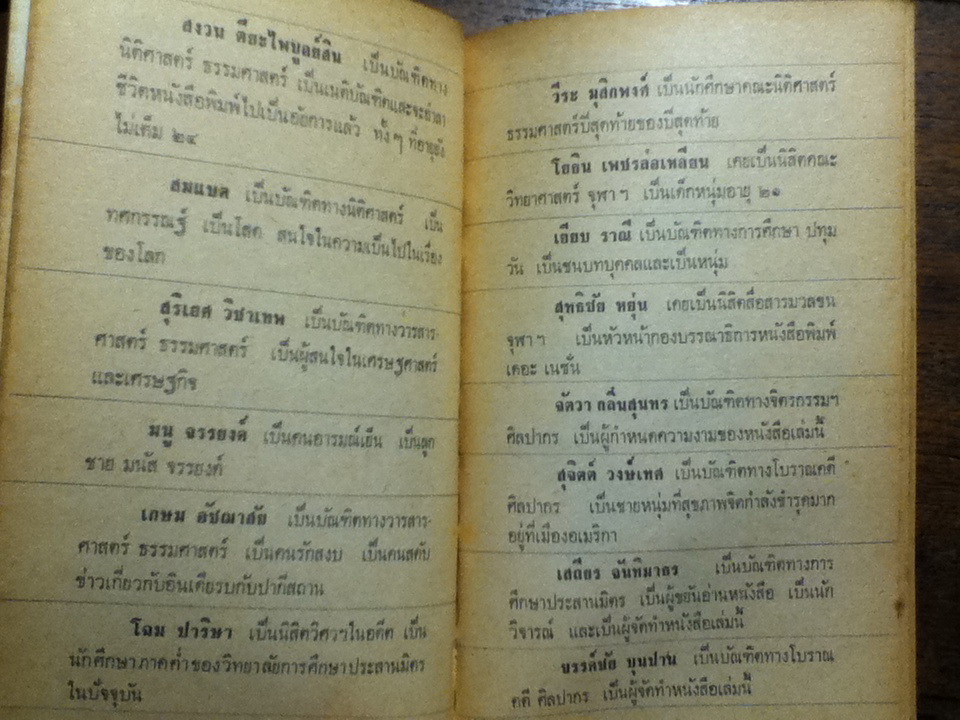 สงวน ตียะไพบูลย์สิน เป็นบัณฑิตทาง
นิติศาสตร์ ธรรมศาสตร์ เป็นเนติบัณฑิตและจะอำลา
ชีวิตหนังสือพิมพ์ไปเป็นอัยการแล้ว ทั้งๆ ที่อายุยัง
ไม่เต็ม ๒๔
สมแขด เป็นบัณฑิตทางนิติศาสตร์ เป็น
ทศกรรณฐ์ เป็นโสด สนใจในความเป็นไปในเรื่อง
ของโลก
สุริเยศ วิชาเทพ เป็นบัณฑิตทางวารสาร-
ศาสตร์ ธรรมศาสตร์ เป็นผู้สนใจในเศรษฐศาสตร์
และเศรษฐกิจ
มนู จรรยงค์ เป็นคนอารมณ์เย็น เป็นลูก
ชาย มนัส จรรยงค์
เกษม อัชฌาสัย เป็นบัณฑิตทางวารสาร-
ศาสตร์ ธรรมศาสตร์ เป็นคนรักสงบ เป็นคนสดับ
ข่าวเกี่ยวกับอินเดียรบกับปากีสถาน
โฉม ปาริษา เป็นนิสิตวิศวฯในอดีต เป็น
นักศึกษาภาคค่ำของวิทยาลัยการศึกษาประสานมิตร
ในปัจจุบัน
วีระ มุสิกพงศ์ เป็นนักศึกษาคณะนิติศาสตร์
ธรรมศาสตร์ปีสุดท้ายของปีสุดท้าย
โยธิน เพชรล่อเหลียน เคยเป็นนิสิตคณะ
วิทยาศาสตร์ จุฬาฯ เป็นเด็กหนุ่มอายุ ๒๑
เธียบ ราณี เป็นบัณฑิตทางการศึกษา ปทุม
วัน เป็นชนบทบุคคลและเป็นหนุ่ม
สุทธิชัย หยุ่น เคยเป็นนิสิตสื่อสารมวลชน
จุฬาฯ เป็นหัวหน้ากองบรรณาธิการหนังสือพิมพ์
เดอะ เนชั่น
จัตวา กลิ่นสุนทร เป็นบัณฑิตทางจิตรกรรมฯ
ศิลปากร เป็นผู้กำหนดความงามของหนังสือเล่มนี้
สุจิตต์ วงษ์เทศ เป็นบัณฑิตทางโบราณคดี
ศิลปากร เป็นชายหนุ่มที่สุขภาพจิตกำลังชำรุดมาก
อยู่ที่เมืองอเมริกา
เสถียร จันทิมาธร เป็นบัณฑิตทางการ
ศึกษาประสานมิตร เป็นผู้ขยันอ่านหนังสือ เป็นนัก
วิจารณ์ และเป็นผู้จัดทำหนังสือเล่มนี้
ขรรค์ชัย บุนปาน เป็นบัณฑิตทางโบราณ
คดี ศิลปากร เป็นผู้จัดทำหนังสือเล่มนี้